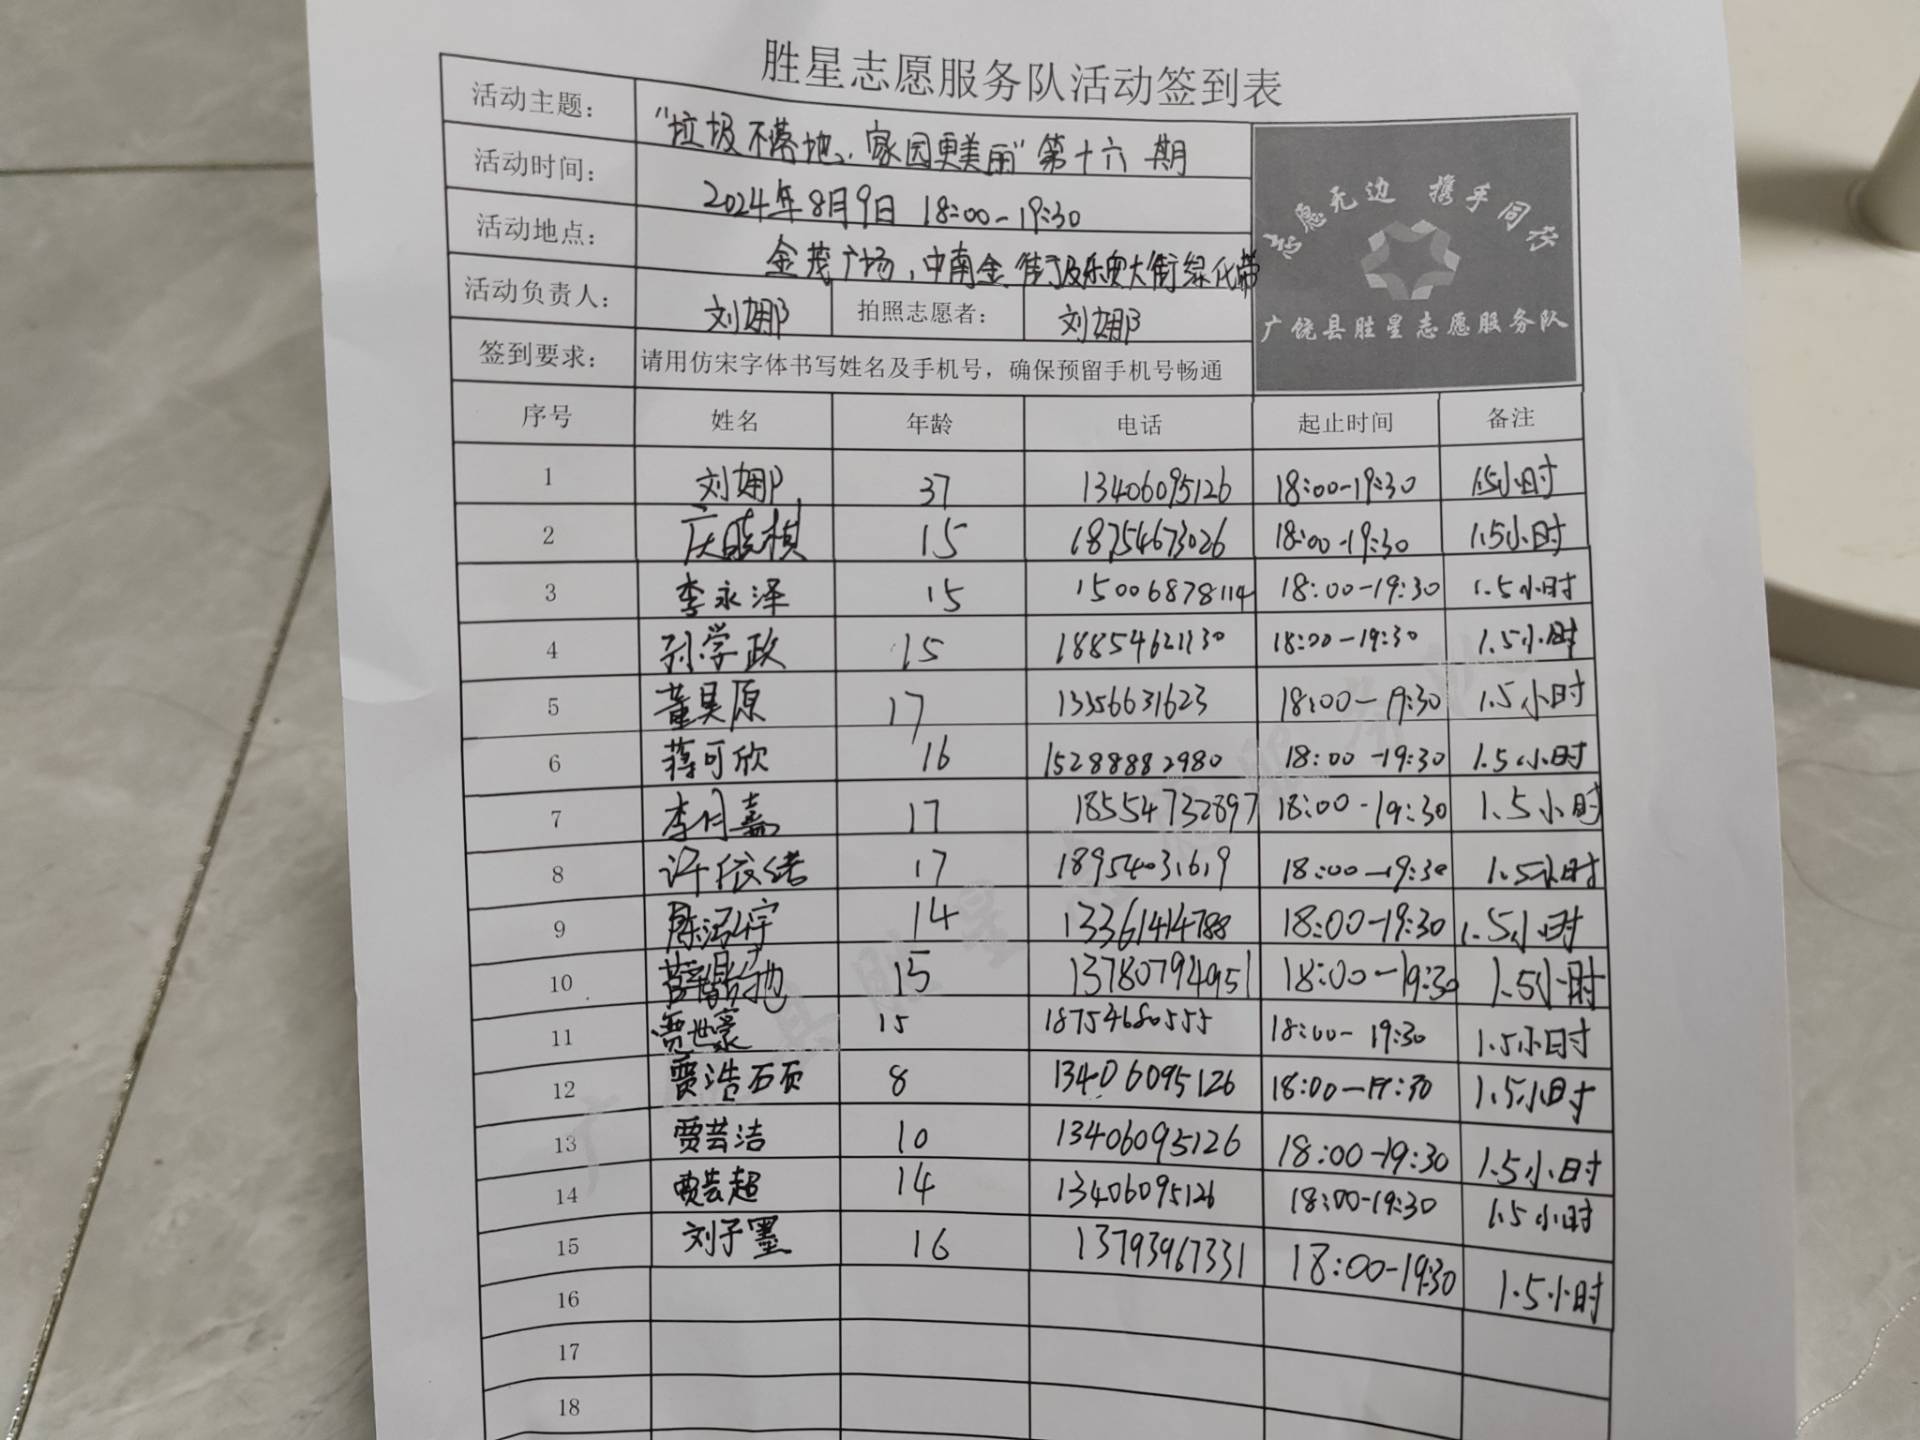 胜星志愿服务队活动签到表
活动主题： "垃圾不落地，家园更美丽"第十六期
活动时间： 2024年8月9日 18:00-19:30
活动地点： 金茂广场，中南金街及乐安大街绿化带
志愿无边 携手同行
广饶县胜星志愿服务队
活动负责人： 刘娜 拍照志愿者： 刘娜
签到要求： 请用仿宋字体书写姓名及手机号，确保预留手机号畅通
序号 姓名 年龄 电话 起止时间 备注
1 刘娜 37 13406095126 18:00-19:30 1.5小时
2 15 18754673026 18:00-19:30 1.5小时
3 李永泽 15 15006878114 18:00-19:30 1.5小时
4 孙学政 15 18854621130 18:00-19:30 1.5小时
5 董昊原 17 13356631623 18:00-19:30 1.5小时
6 蒋可欣 16 15288882980 18:00-19:30 1.5小时
7 17 18554732897 18:00-19:30 1.5小时
8 许依诺 17 18954031619 18:00-19:30 1.5小时
9 陈泓宇 14 13361414788 18:00-19:30 1.5小时
10 15 13780794951 18:00-19:30 1.5小时
11 贾世豪 15 18754680555 18:00-19:30 1.5小时
12 贾浩硕 8 13406095126 18:00-19:30 1.5小时
13 贾芸洁 10 13406095126 18:00-19:30 1.5小时
14 贾芸超 14 13406095126 18:00-19:30 1.5小时
15 刘子墨 16 13793967331 18:00-19:30 1.5小时
16
17
18
广饶县胜星志愿服务队